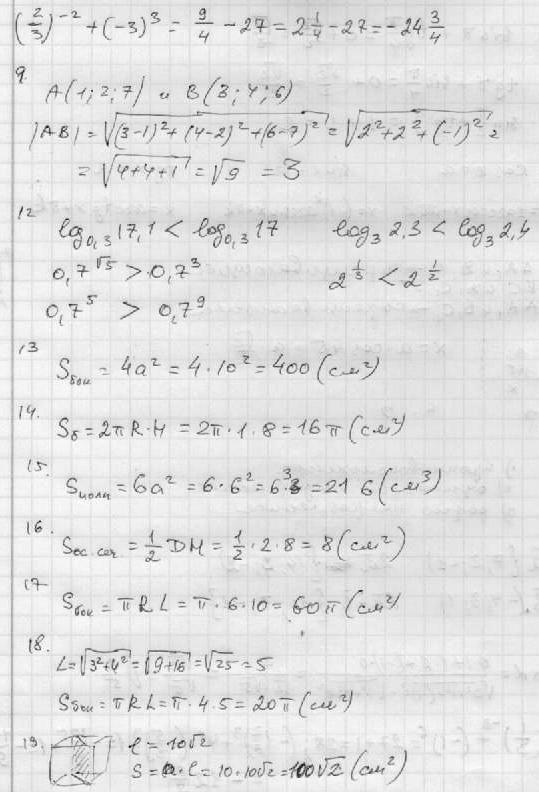 (2/3)^-2 + (-3)^3 = 9/4 - 27 = 2 1/4 - 27 = -24 3/4
9.
A(1; 2; 7) и B(3; 4; 6)
|AB| = √((3-1)² + (4-2)² + (6-7)²) = √(2² + 2² + (-1)²) =
= √(4+4+1) = √9 = 3
12
log₀,₃ 17,1 < log₀,₃ 17 log₃ 2,3 < log₃ 2,4
0,7^√5 > 0,7³ 2^(1/3) < 2^(1/2)
0,7⁵ > 0,7⁹
13
Sбок = 4a² = 4·10² = 400 (см²)
14.
Sб = 2πR·H = 2π·1·8 = 16π (см²)
15.
Sполн = 6a² = 6·6² = 6³ = 216 (см³)
16.
Sос.сеч = 1/2 DH = 1/2·2·8 = 8 (см²)
17
Sбок = πRL = π·6·10 = 60π (см²)
18.
L = √(3²+4²) = √(9+16) = √25 = 5
Sбок = πRL = π·4·5 = 20π (см²)
19. l = 10√2
S = a·l = 10·10√2 = 100√2 (см²)